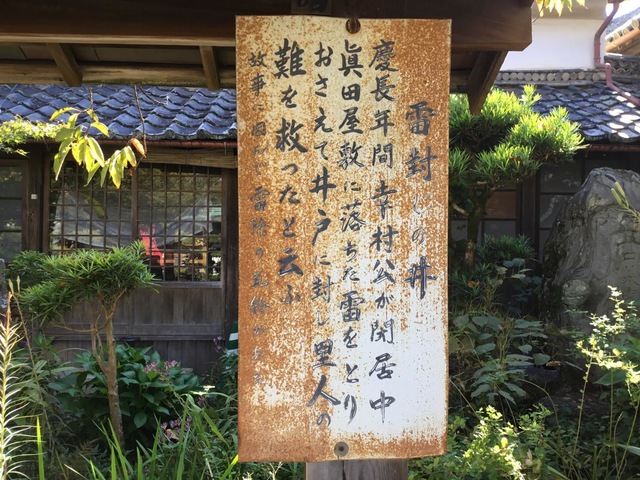 雷封じの井
慶長年間幸村公が閑居中
眞田屋敷に落ちた雷をとり
おさえて井戸に封し里人の
難を救ったと云ふ
故事に因む雷除の